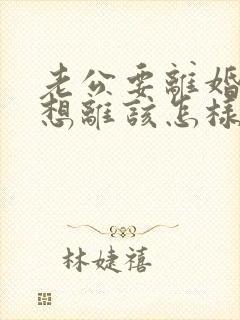 老公要離婚
想離該怎樣
林婕禧